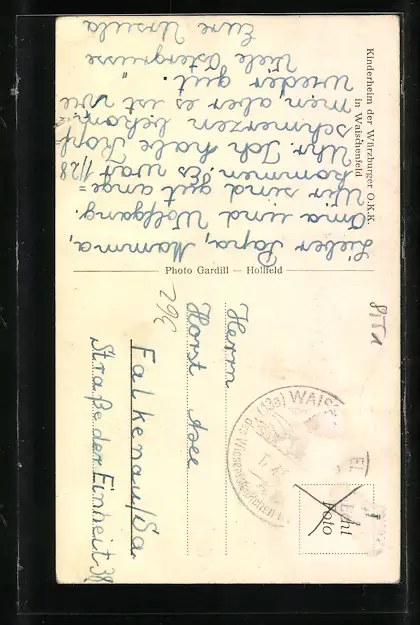 Kinderheim der Würzburger O.K.K.
in Waischenfeld
Lieber Papa, Mamma,
Oma und Wolfgang.
Wir sind gut ange=
kommen. Es war 1/28
Uhr. Ich habe Kopf-
schmerzen bekom-
men aber es ist wie
wieder gut.
Viele Ostergrüsse
Eure Ursula
Photo Gardill — Hollfeld
Echt
Foto
(13a) WAISCH
Herrn
Horst
Falkenau/Sa.
Straße der Einheit 38